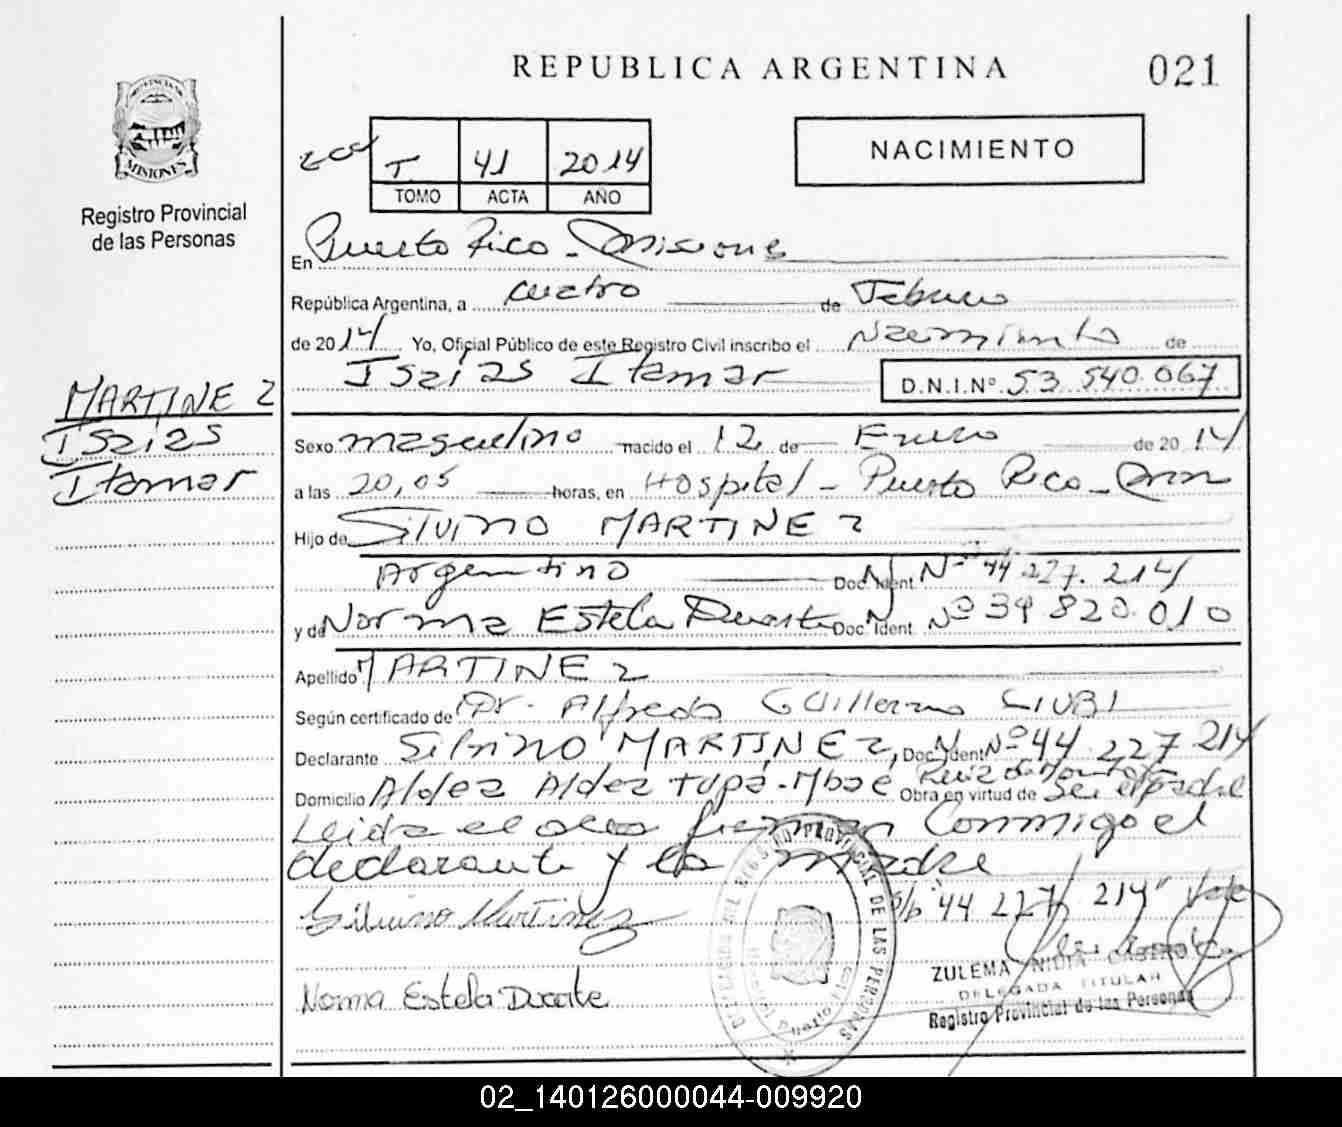 REPUBLICA ARGENTINA
021
MISIONES
Registro Provincial
de las Personas
T 41 2014
TOMO ACTA AÑO
NACIMIENTO
En Puerto Rico - Misiones
República Argentina, a cuatro de Febrero
de 2014 Yo, Oficial Público de este Registro Civil inscribo el Nacimiento de
Isaias Itamar D.N.I.Nº 53 540.067
MARTINEZ
Isaias
Itamar
Sexo masculino nacido el 12 de Enero de 2014
a las 20,05 horas, en Hospital - Puerto Rico -
Hijo de Silvino MARTINEZ
Argentino Doc. Ident. Nº 44.227.214
y de Norma Estela Duarte Doc. Ident. Nº 39 820.010
Apellido MARTINEZ
Según certificado de Dr. Alfredo Guillermo CIUBI
Declarante Silvino MARTINEZ, Doc. Ident Nº 44.227 214
Domicilio Aldea Aldea Tupá-Mbae Ruiz de Montoya Obra en virtud de Ser el padre
Leida el acta firman Conmigo el
declarante y la madre
Silvino Martinez
s/b "44 227 214" Vale
Norma Estela Duarte
ZULEMA NIDIA CASTRO
DELEGADA TITULAR
Registro Provincial de las Personas
REGISTRO PROVINCIAL DE LAS PERSONAS
02_140126000044-009920